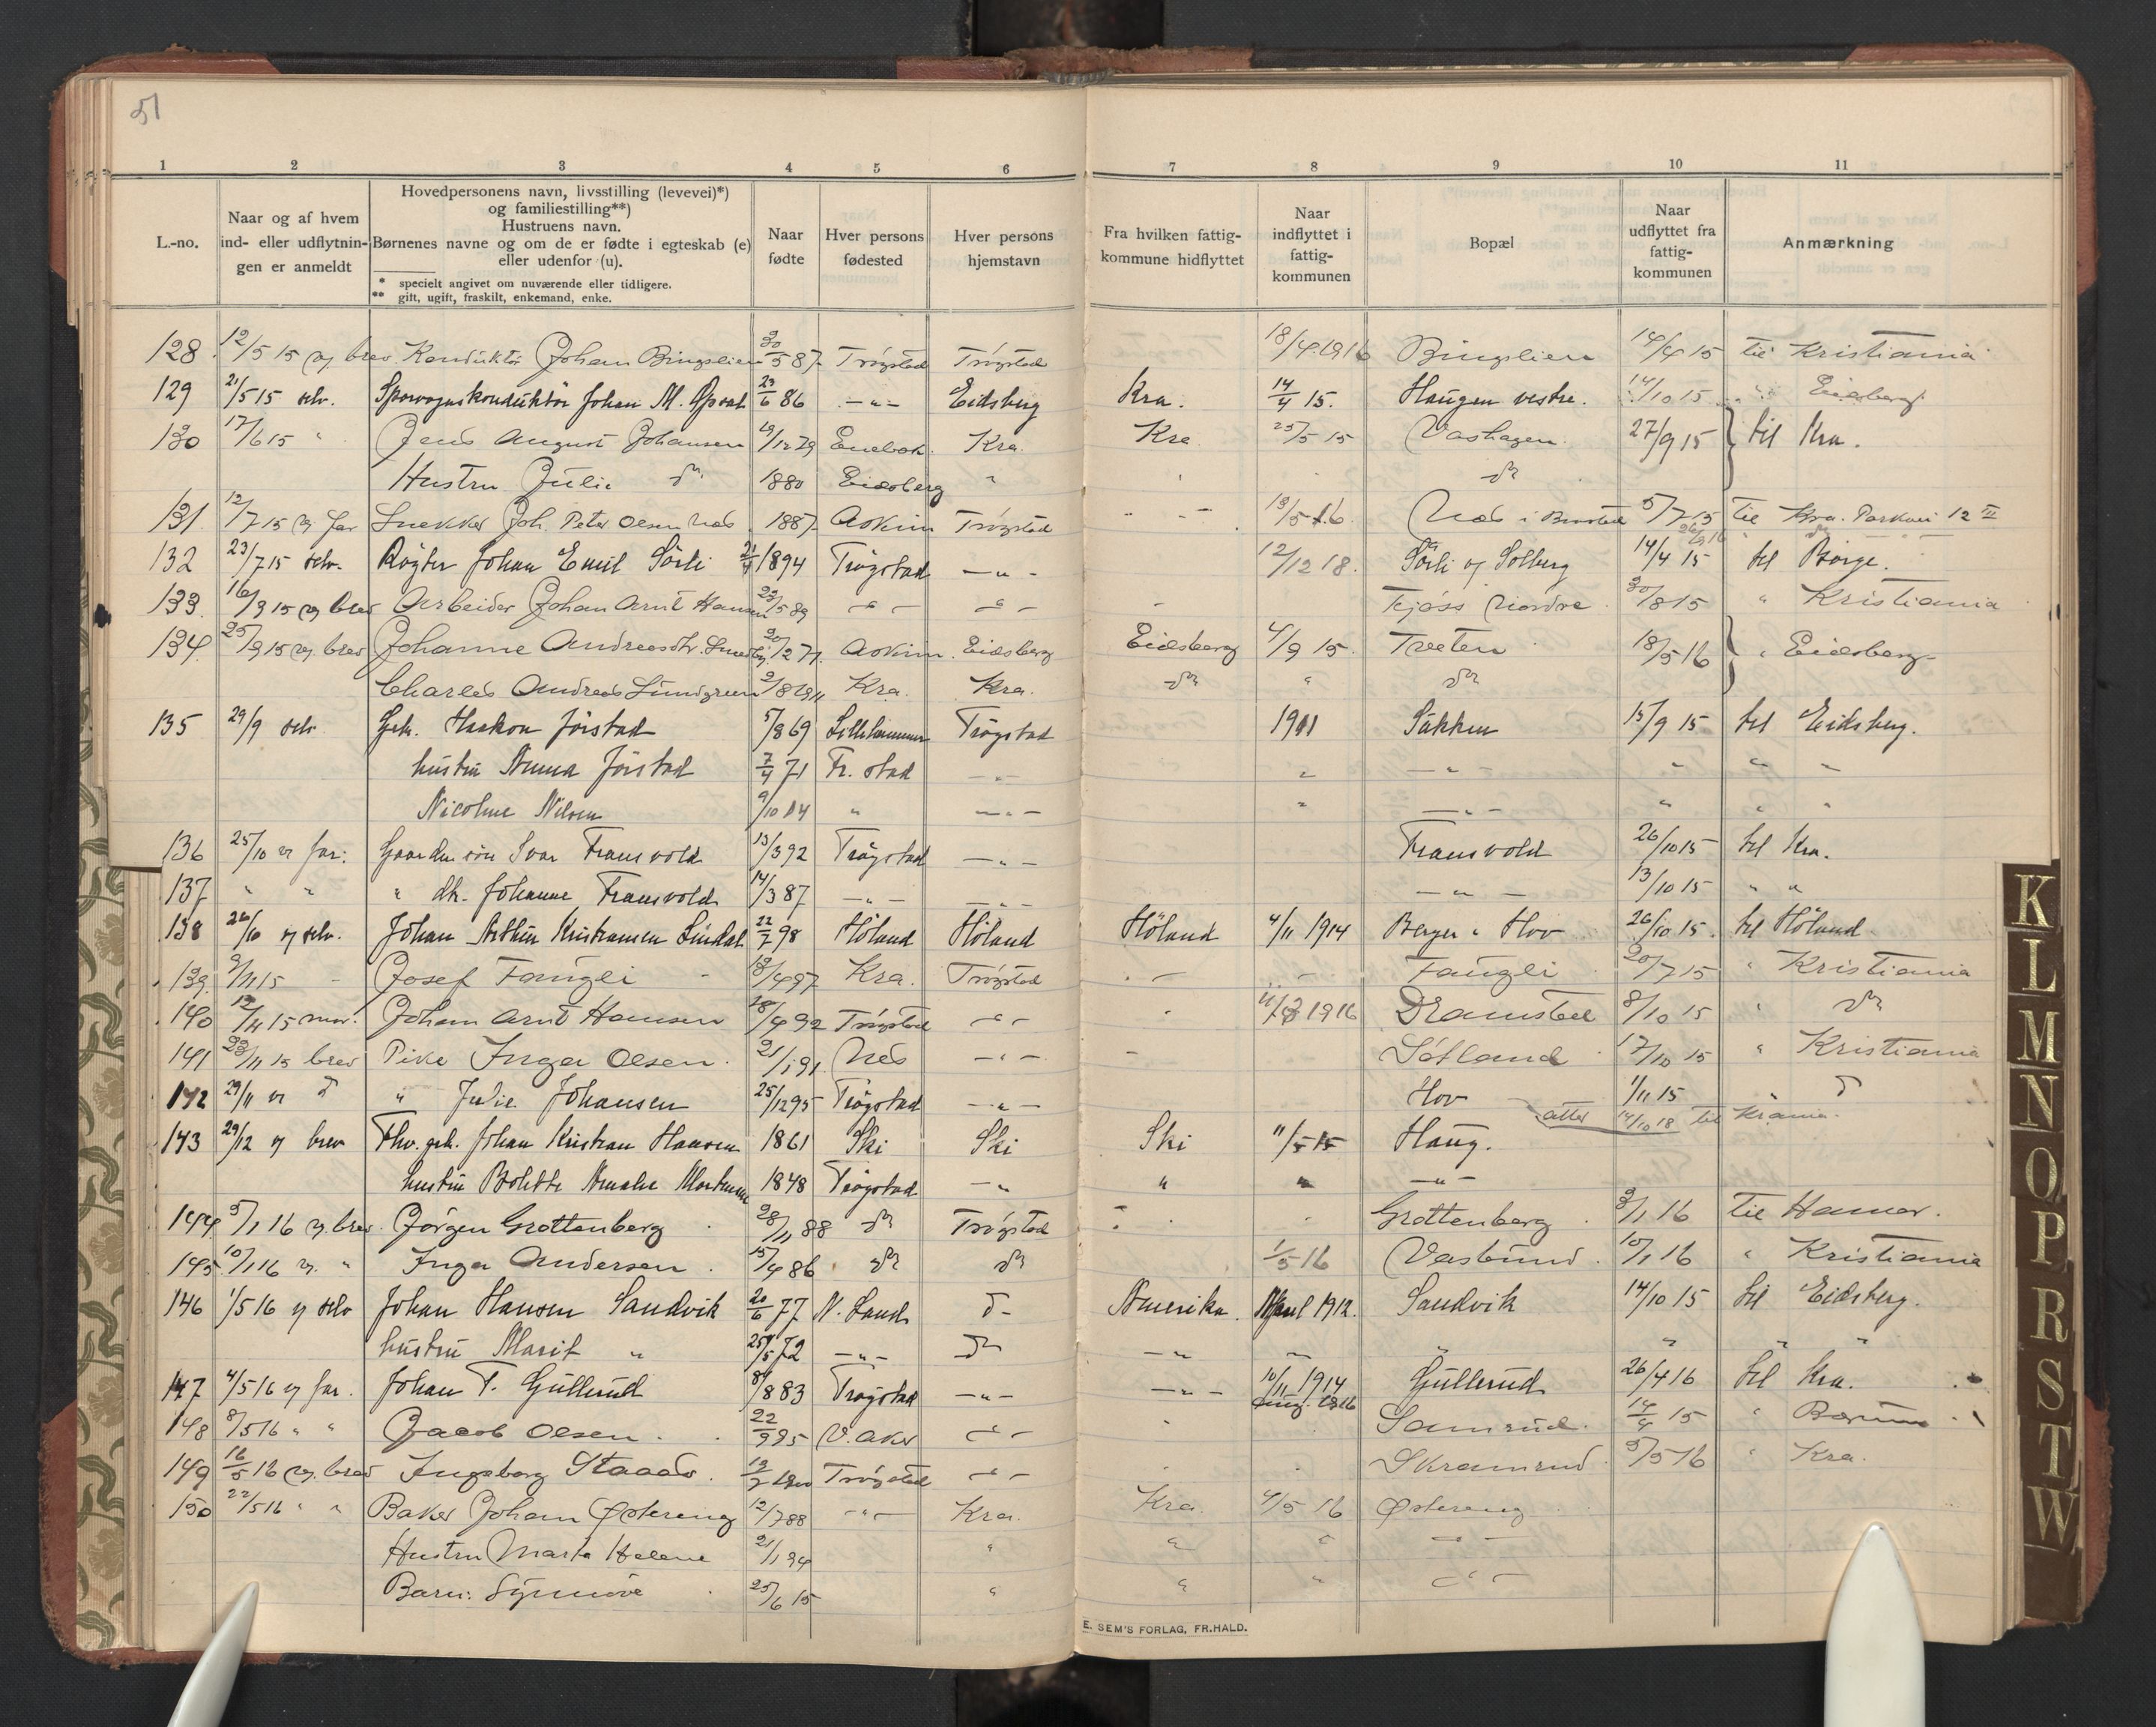 51
1 2 3 4 5 6 7 8 9 10 11
L.-no.
Naar og af hvem
ind- eller udflytnin-
gen er anmeldt
Hovedpersonens navn, livsstilling (levevei)*)
og familiestilling**)
Hustruens navn.
Børnenes navne og om de er fødte i egteskab (e)
eller udenfor (u).
* specielt angivet om nuværende eller tidligere.
** gift, ugift, fraskilt, enkemand, enke.
Naar
fødte
Hver persons
fødested
Hver persons
hjemstavn
Fra hvilken fattig-
kommune hidflyttet
Naar
indflyttet i
fattig-
kommunen
Bopæl
Naar
udflyttet fra
fattig-
kommunen
Anmærkning
128 12/5 15 og brev Konduktør Johan Bingslien 30/5 87 Trögstad Trögstad 18/4 1916 Bingslien 14/4 15 til Kristiania
129 21/5 15 selv. Sporvognskonduktör Johan M. 23/6 86 -"- Eidsberg Kra. 14/4 15. Haugen vestre. 14/10 15 " Eidsberg
130 17/6 15 " Jens August Johansen 19/12 79 Enebak Kra. Kra 25/5 15 Vashagen 27/9 15 til Kra.
Hustru Julie do 1880 Eidsberg " " do
131 12/7 15 og far Snekker Joh. Peter Olsen Næs 1887 Askim Trögstad 13/5 16 Næs i Båstad 5/7 15 til Kra. Parkvei 12 III
132 23/7 15 selv. Røgter Johan Emil Sörli 21/4 1894 Trögstad -"- 12/12 18. Sörli og Solberg 14/4 15 til Borge.
133. 16/9 15 og brev Arbeider Johan Arnt Hansen 23/5 89 -"- -"- - Kjøss nordre 30/8 15 " Kristiania
134. 25/9 15 og brev Johanne Andreasdtr. 20/12 71. Askim Eidsberg Eidsberg 4/9 15. Træten 18/5 16 " Eidsberg
Charles Andreas Lundgreen 2/8 1911 Kra. Kra. do " do
135 29/9 selv Gbr. Haakon Jörstad 5/8 69 Lillehammer Trögstad 1911 Såkken 15/9 15 til Eidsberg.
hustru Anna Jörstad 7/4 71 Fr. stad -"- " -"- " " "
Nicoline Nilsen 9/10 04 " -"- " -"- " " "
136 25/10 v far: Gaardm. sön Ivar Fransvold 13/3 92 Trögstad -"- Fransvold 26/10 15 til Kra.
137 " " " dtr. Johanne Fransvold 14/3 87 -"- -"- -"- 13/10 15 " "
138 26/10 v selv. Johan Arthur Kristiansen Lindal 22/7 98 Höland Höland Höland 4/11 1914 Berger u Hov 26/10 15. til Höland
139. 9/11 15 - Josef Fangli 13/4 97 Kra. Trögstad Fangli 20/7 15 " Kristiania
140 12/11 15 mor. Johan Arnt Hansen 18/4 92 Trögstad -"- 1916 Dramstad 8/10 15 " do
141 23/11 15 brev Pike Inga Olsen 21/1 91 Næs -"- - Sötland 17/10 15 " Kristiania
142 29/11 v d " Julie Johansen 25/12 95 Trögstad -"- Hov 1/11 15 d
atter 14/10 18 til Krania.
143 29/12 v brev Fhv. gbr. Johan Kristian Hansen 1861 Ski Ski Ski 11/5 15 Haug.
hustru Bolette Amalie 1848 Trögstad -"- " " -"-
144. 5/1 16 og brev. Jørgen Grottenberg 28/11 88 do Trögstad Grottenberg 3/1 16 til Hamar.
145. 10/1 16 v. " Inga Andersen 15/4 86 do do 1/5 16 Vasbund 10/1 16 " Kristiania
146 1/5 16 v selv Johan Hansen Sandvik 20/6 77 N. Land d- Amerika. April 1912. Sandvik 14/10 15 til Eidsberg.
hustru Marit " 25/5 72 -"- do -"- " " " " "
147 4/5 16 v far. Johan T. Gullerud 8/8 83 Trögstad -"- -"- 10/11 1914 Gullerud 26/4 16 til Kra.
148 8/5 16 " " Jacob Olsen 22/9 95 V. Aker -"- 1916 Samrud 14/4 15 " Bærum
149 16/5 16 og brev Ingeborg Staads 1900 Trögstad -"- Skramrud 5/5 16 " Kra.
150 22/5 16 " " Baker Johan Østereng 12/7 88 -"- Kra. Kra. 4/5 16 Østereng
Hustru Marta Helene 21/1 94 " " " -"-
Barn: Synnöve 25/6 15 " " " -"-
E. SEM'S FORLAG, FR.HALD.
K
L
M
N
O
P
R
S
T
W